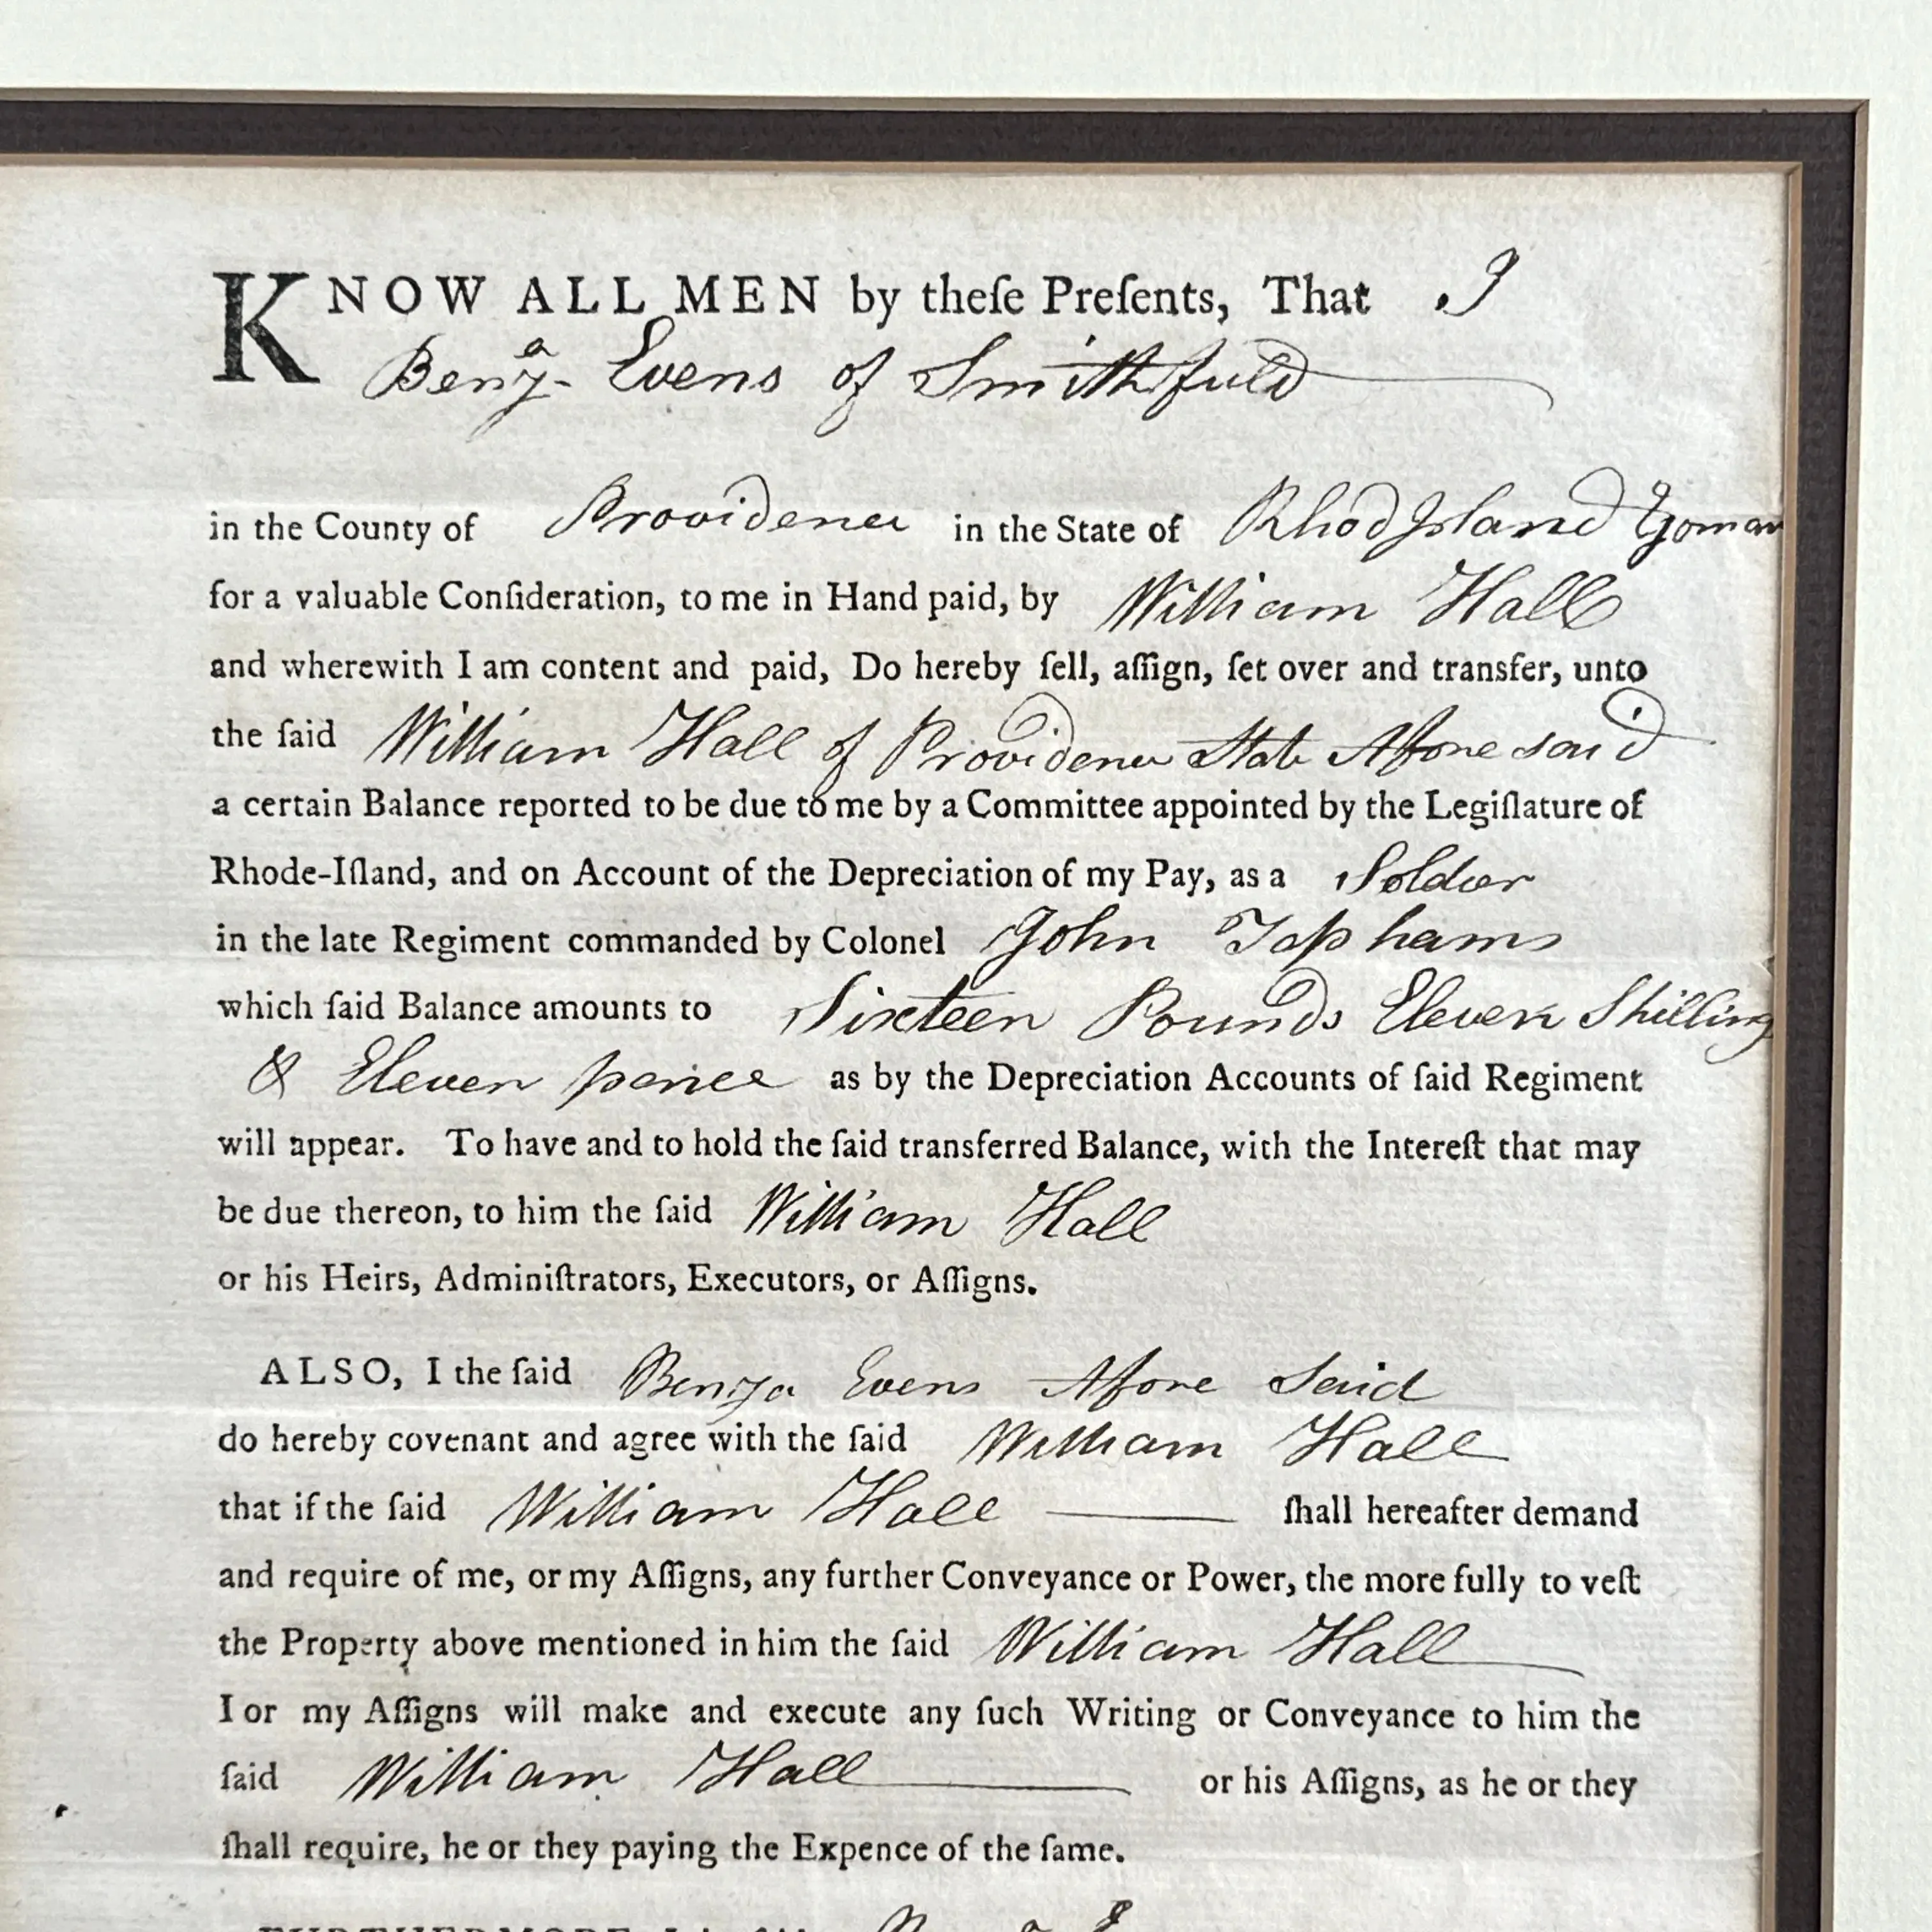 KNOW ALL MEN by theſe Preſents, That I
Benjª Evens of Smithfield
in the County of Providence in the State of Rhod Island Yeoman
for a valuable Conſideration, to me in Hand paid, by William Hall
and wherewith I am content and paid, Do hereby ſell, aſſign, ſet over and transfer, unto
the ſaid William Hall of Providence State Afore said
a certain Balance reported to be due to me by a Committee appointed by the Legiſlature of
Rhode-Iſland, and on Account of the Depreciation of my Pay, as a Soldier
in the late Regiment commanded by Colonel John Tophams
which ſaid Balance amounts to Sixteen Pounds Eleven Shilling
& Eleven pence as by the Depreciation Accounts of ſaid Regiment
will appear. To have and to hold the ſaid transferred Balance, with the Intereſt that may
be due thereon, to him the ſaid William Hall
or his Heirs, Adminiſtrators, Executors, or Aſſigns.
ALSO, I the ſaid Benja Evens Afore Said
do hereby covenant and agree with the ſaid William Hall
that if the ſaid William Hall ſhall hereafter demand
and require of me, or my Aſſigns, any further Conveyance or Power, the more fully to veſt
the Property above mentioned in him the ſaid William Hall
I or my Aſſigns will make and execute any ſuch Writing or Conveyance to him the
ſaid William Hall or his Aſſigns, as he or they
ſhall require, he or they paying the Expence of the ſame.